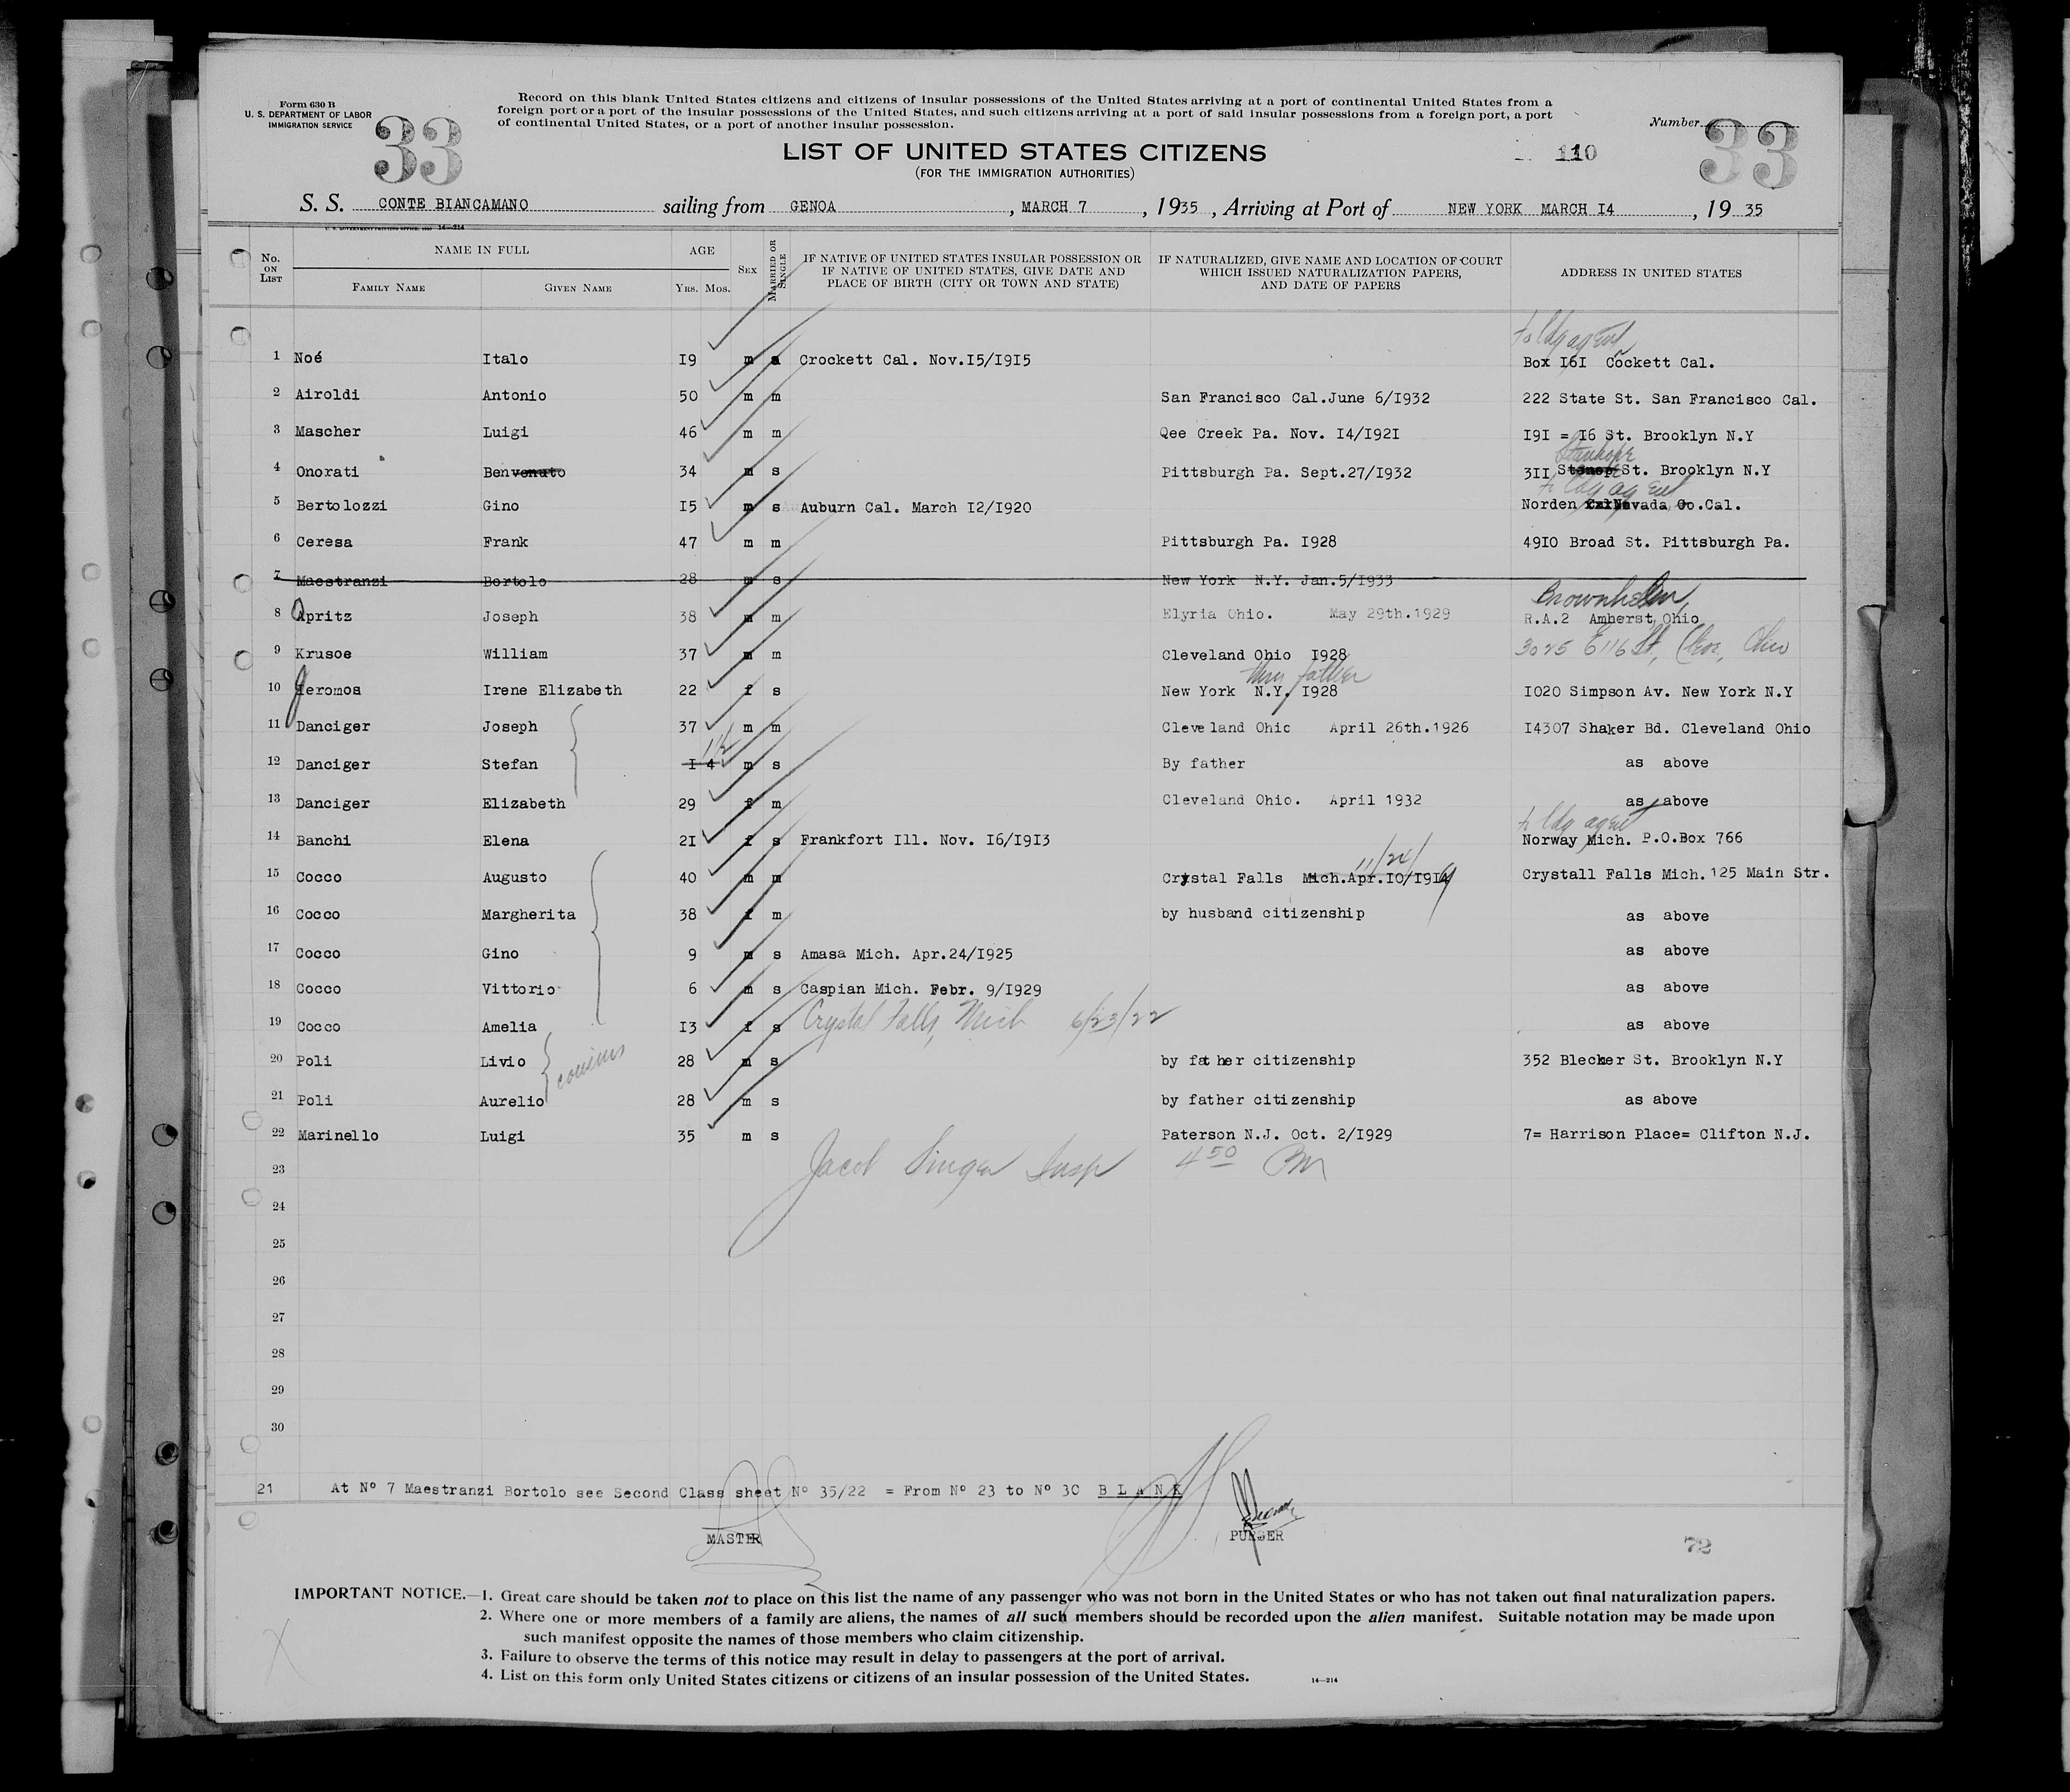 Form 630 B
U. S. DEPARTMENT OF LABOR
IMMIGRATION SERVICE
33
Record on this blank United States citizens and citizens of insular possessions of the United States arriving at a port of continental United States from a
foreign port or a port of the insular possessions of the United States, and such citizens arriving at a port of said insular possessions from a foreign port, a port
of continental United States, or a port of another insular possession.
Number
33
LIST OF UNITED STATES CITIZENS
110
(FOR THE IMMIGRATION AUTHORITIES)
S. S. CONTE BIANCAMANO sailing from GENOA, MARCH 7, 1935, Arriving at Port of NEW YORK MARCH I4, 19 35
No. ON LIST
NAME IN FULL
FAMILY NAME GIVEN NAME
AGE
YRS. MOS.
SEX
MARRIED OR SINGLE
IF NATIVE OF UNITED STATES INSULAR POSSESSION OR
IF NATIVE OF UNITED STATES, GIVE DATE AND
PLACE OF BIRTH (CITY OR TOWN AND STATE)
IF NATURALIZED, GIVE NAME AND LOCATION OF COURT
WHICH ISSUED NATURALIZATION PAPERS,
AND DATE OF PAPERS
ADDRESS IN UNITED STATES
to ldg agent
1 Noé Italo I9 m s Crockett Cal. Nov.I5/I9I5 Box I6I Cockett Cal.
2 Airoldi Antonio 50 m m San Francisco Cal.June 6/I932 222 State St. San Francisco Cal.
3 Mascher Luigi 46 m m Qee Creek Pa. Nov. I4/I92I I9I = I6 St. Brooklyn N.Y
Stanhope
4 Onorati Benvenuto 34 m s Pittsburgh Pa. Sept.27/I932 3II St. Brooklyn N.Y
to ldg agent
5 Bertolozzi Gino I5 m s Auburn Cal. March I2/I920 Norden Nevada Co.Cal.
6 Ceresa Frank 47 m m Pittsburgh Pa. I928 49I0 Broad St. Pittsburgh Pa.
7 Maestranzi Bortolo 28 m s New York N.Y. Jan.5/I933
Brownhelm,
8 Opritz Joseph 38 m m Elyria Ohio. May 29th.1929 R.A.2 Amherst, Ohio
9 Krusoe William 37 m m Cleveland Ohio I928 3025 E 116 St, Cleve, Ohio
thru father
10 Jeromos Irene Elizabeth 22 f s New York N.Y. I928 I020 Simpson Av. New York N.Y
11 Danciger Joseph 37 m m Cleveland Ohio April 26th.1926 I4307 Shaker Bd. Cleveland Ohio
1½
12 Danciger Stefan I 4 m s By father as above
13 Danciger Elizabeth 29 f m Cleveland Ohio. April 1932 as above
to ldg agent
14 Banchi Elena 2I f s Frankfort Ill. Nov. I6/I9I3 Norway Mich. P.O.Box 766
11/24/
15 Cocco Augusto 40 m m Crystal Falls Mich.Apr.I0/I9I4 Crystall Falls Mich. 125 Main Str.
16 Cocco Margherita 38 f m by husband citizenship as above
17 Cocco Gino 9 m s Amasa Mich. Apr.24/I925 as above
18 Cocco Vittorio 6 m s Caspian Mich. Febr. 9/I929 as above
19 Cocco Amelia I3 f s Crystal Falls, Mich 6/23/22 as above
20 Poli Livio 28 m s by father citizenship 352 Blecker St. Brooklyn N.Y
cousins
21 Poli Aurelio 28 m s by father citizenship as above
22 Marinello Luigi 35 m s Paterson N.J. Oct. 2/I929 7= Harrison Place= Clifton N.J.
23 Jacob Singer Insp 4 50 PM
24
25
26
27
28
29
30
21 At Nº 7 Maestranzi Bortolo see Second Class sheet Nº 35/22 = From Nº 23 to Nº 30 B L A N K
MASTER
PURSER
72
IMPORTANT NOTICE.—1. Great care should be taken not to place on this list the name of any passenger who was not born in the United States or who has not taken out final naturalization papers.
2. Where one or more members of a family are aliens, the names of all such members should be recorded upon the alien manifest. Suitable notation may be made upon
such manifest opposite the names of those members who claim citizenship.
3. Failure to observe the terms of this notice may result in delay to passengers at the port of arrival.
4. List on this form only United States citizens or citizens of an insular possession of the United States.
14—214